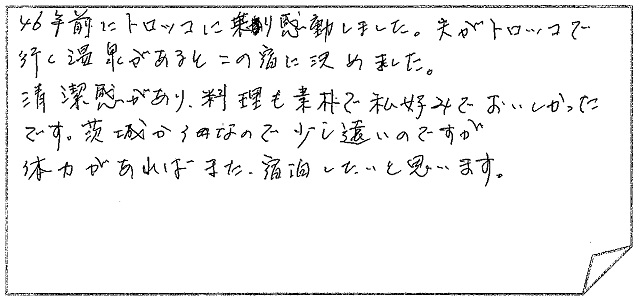 46年前にトロッコに乗り感動しました。夫がトロッコで
行く温泉があるとこの宿に決めました。
清潔感があり、料理も素朴で私好みでおいしかった
です。茨城からなので少し遠いのですが
体力があればまた、宿泊したいと思います。